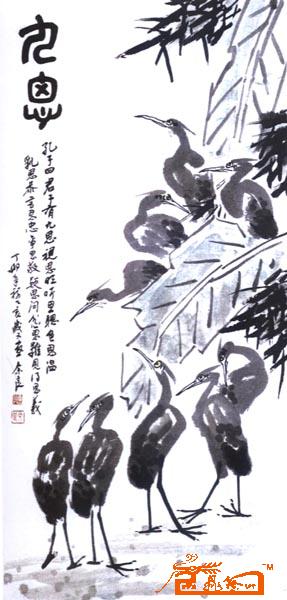 九思
孔子曰君子有九思視思明听思聰色思温
貌思恭言思忠事思敬疑思問忿思難見得思義
丁卯年
TM